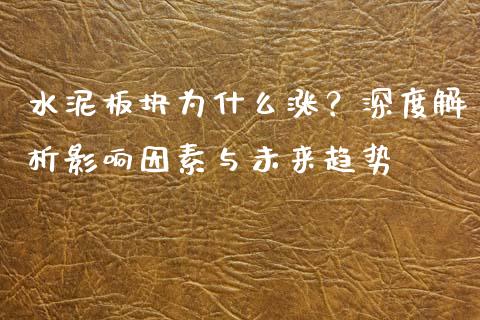 水泥板块为什么涨？深度解
析影响因素与未来趋势